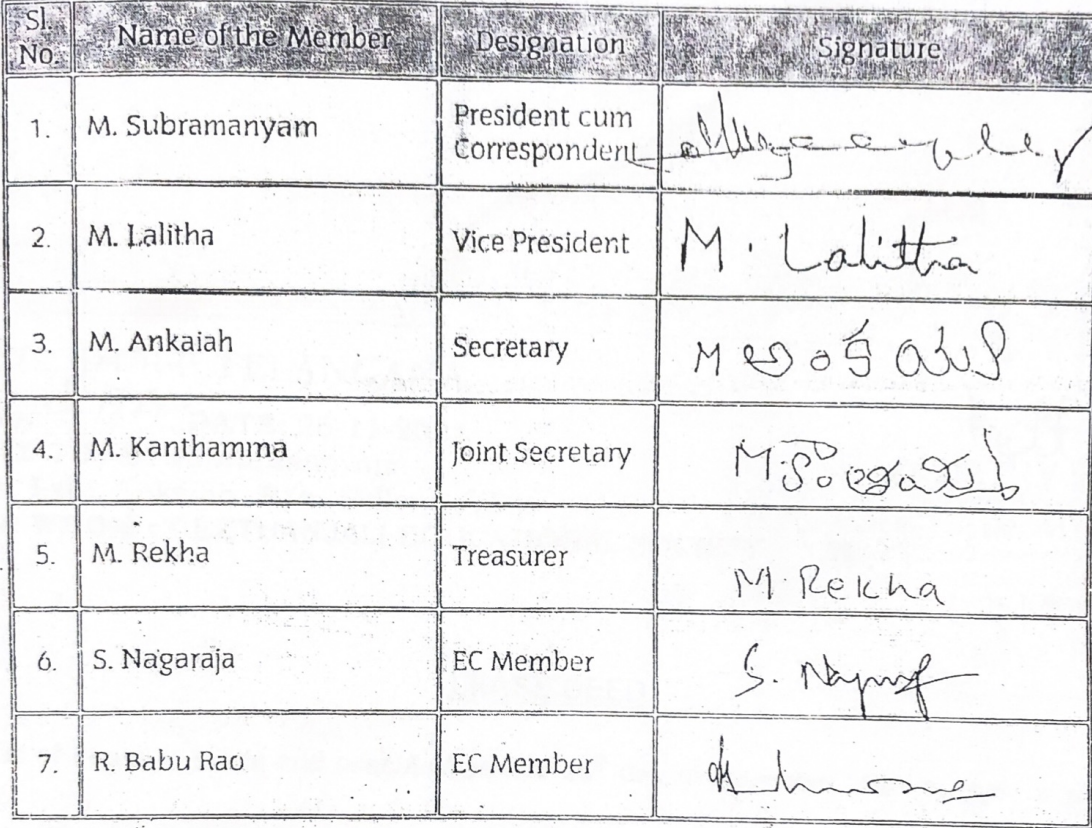 Sl. No. Name of the Member Designation Signature
1. M. Subramanyam President cum Correspondent
2. M. Lalitha Vice President M. Lalittha
3. M. Ankaiah Secretary M అంకయ్య
4. M. Kanthamma Joint Secretary M.
5. M. Rekha Treasurer M. Rekha
6. S. Nagaraja EC Member S.
7. R. Babu Rao EC Member